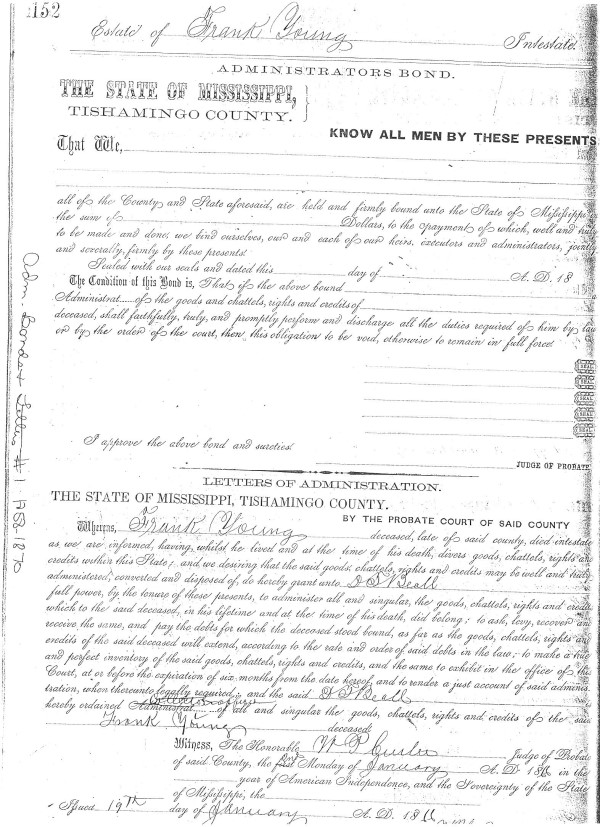 152
Estate of Frank Young Intestate.
ADMINISTRATORS BOND.
THE STATE OF MISSISSIPPI,
TISHAMINGO COUNTY.
KNOW ALL MEN BY THESE PRESENTS
That We,
all of the County and State aforesaid, are held and firmly bound unto the State of Mississippi
the sum of Dollars, to the payment of which, well and truly
to be made and done, we bind ourselves, our and each of our heirs, executors and administrators, jointly
and severally, firmly by these presents.
Sealed with our seals and dated this day of A. D. 18
The Condition of this Bond is, That of the above bound
Administrat of the goods and chattels, rights and credits of
deceased, shall faithfully, truly, and promptly perform and discharge all the duties required of him by law
or by the order of the court, then this obligation to be void, otherwise to remain in full force.
SEAL
SEAL
SEAL
SEAL
SEAL
I approve the above bond and sureties.
JUDGE OF PROBATE
Adm. Bonds & Letters #1 1858-1870
LETTERS OF ADMINISTRATION.
THE STATE OF MISSISSIPPI, TISHAMINGO COUNTY.
BY THE PROBATE COURT OF SAID COUNTY
Whereas, Frank Young deceased, late of said county, died intestate
as we are informed, having, whilst he lived and at the time of his death, divers goods, chattels, rights an
credits within this State; and we desiring that the said goods, chattels, rights and credits may be well and truly
administered, converted and disposed of, do hereby grant unto Beall
full power, by the tenure of these presents, to administer all and singular, the goods, chattels, rights and credit
which to the said deceased, in his lifetime and at the time of his death, did belong; to ask, levy, recover an
receive the same, and pay the debts for which the deceased stood bound, as far as the goods, chattels, rights an
credits of the said deceased will extend, according to the rate and order of said debts in the law; to make a true
and perfect inventory of the said goods, chattels, rights and credits, and the same to exhibit in the office of this
Court, at or before the expiration of six months from the date hereof, and to render a just account of said adminis
tration, when thereunto legally required; and the said Beall
hereby ordained Administrat of all and singular the goods, chattels, rights and credits of the said
Frank Young deceased.
Witness, The Honorable Judge of Probate
of said County, the Monday of January A. D. 18 in the
year of American Independence, and the Sovereignty of the State
of Mississippi, the
Issued 19th day of January A. D. 18